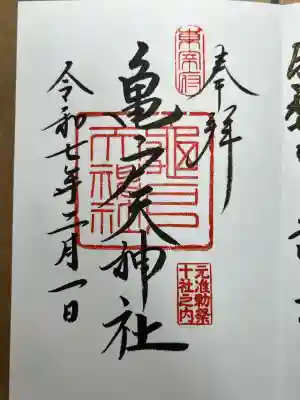 奉拝
東宰府
元准勅祭
十社之内
亀戸天神社
亀戸
天神社
令和七年二月一日